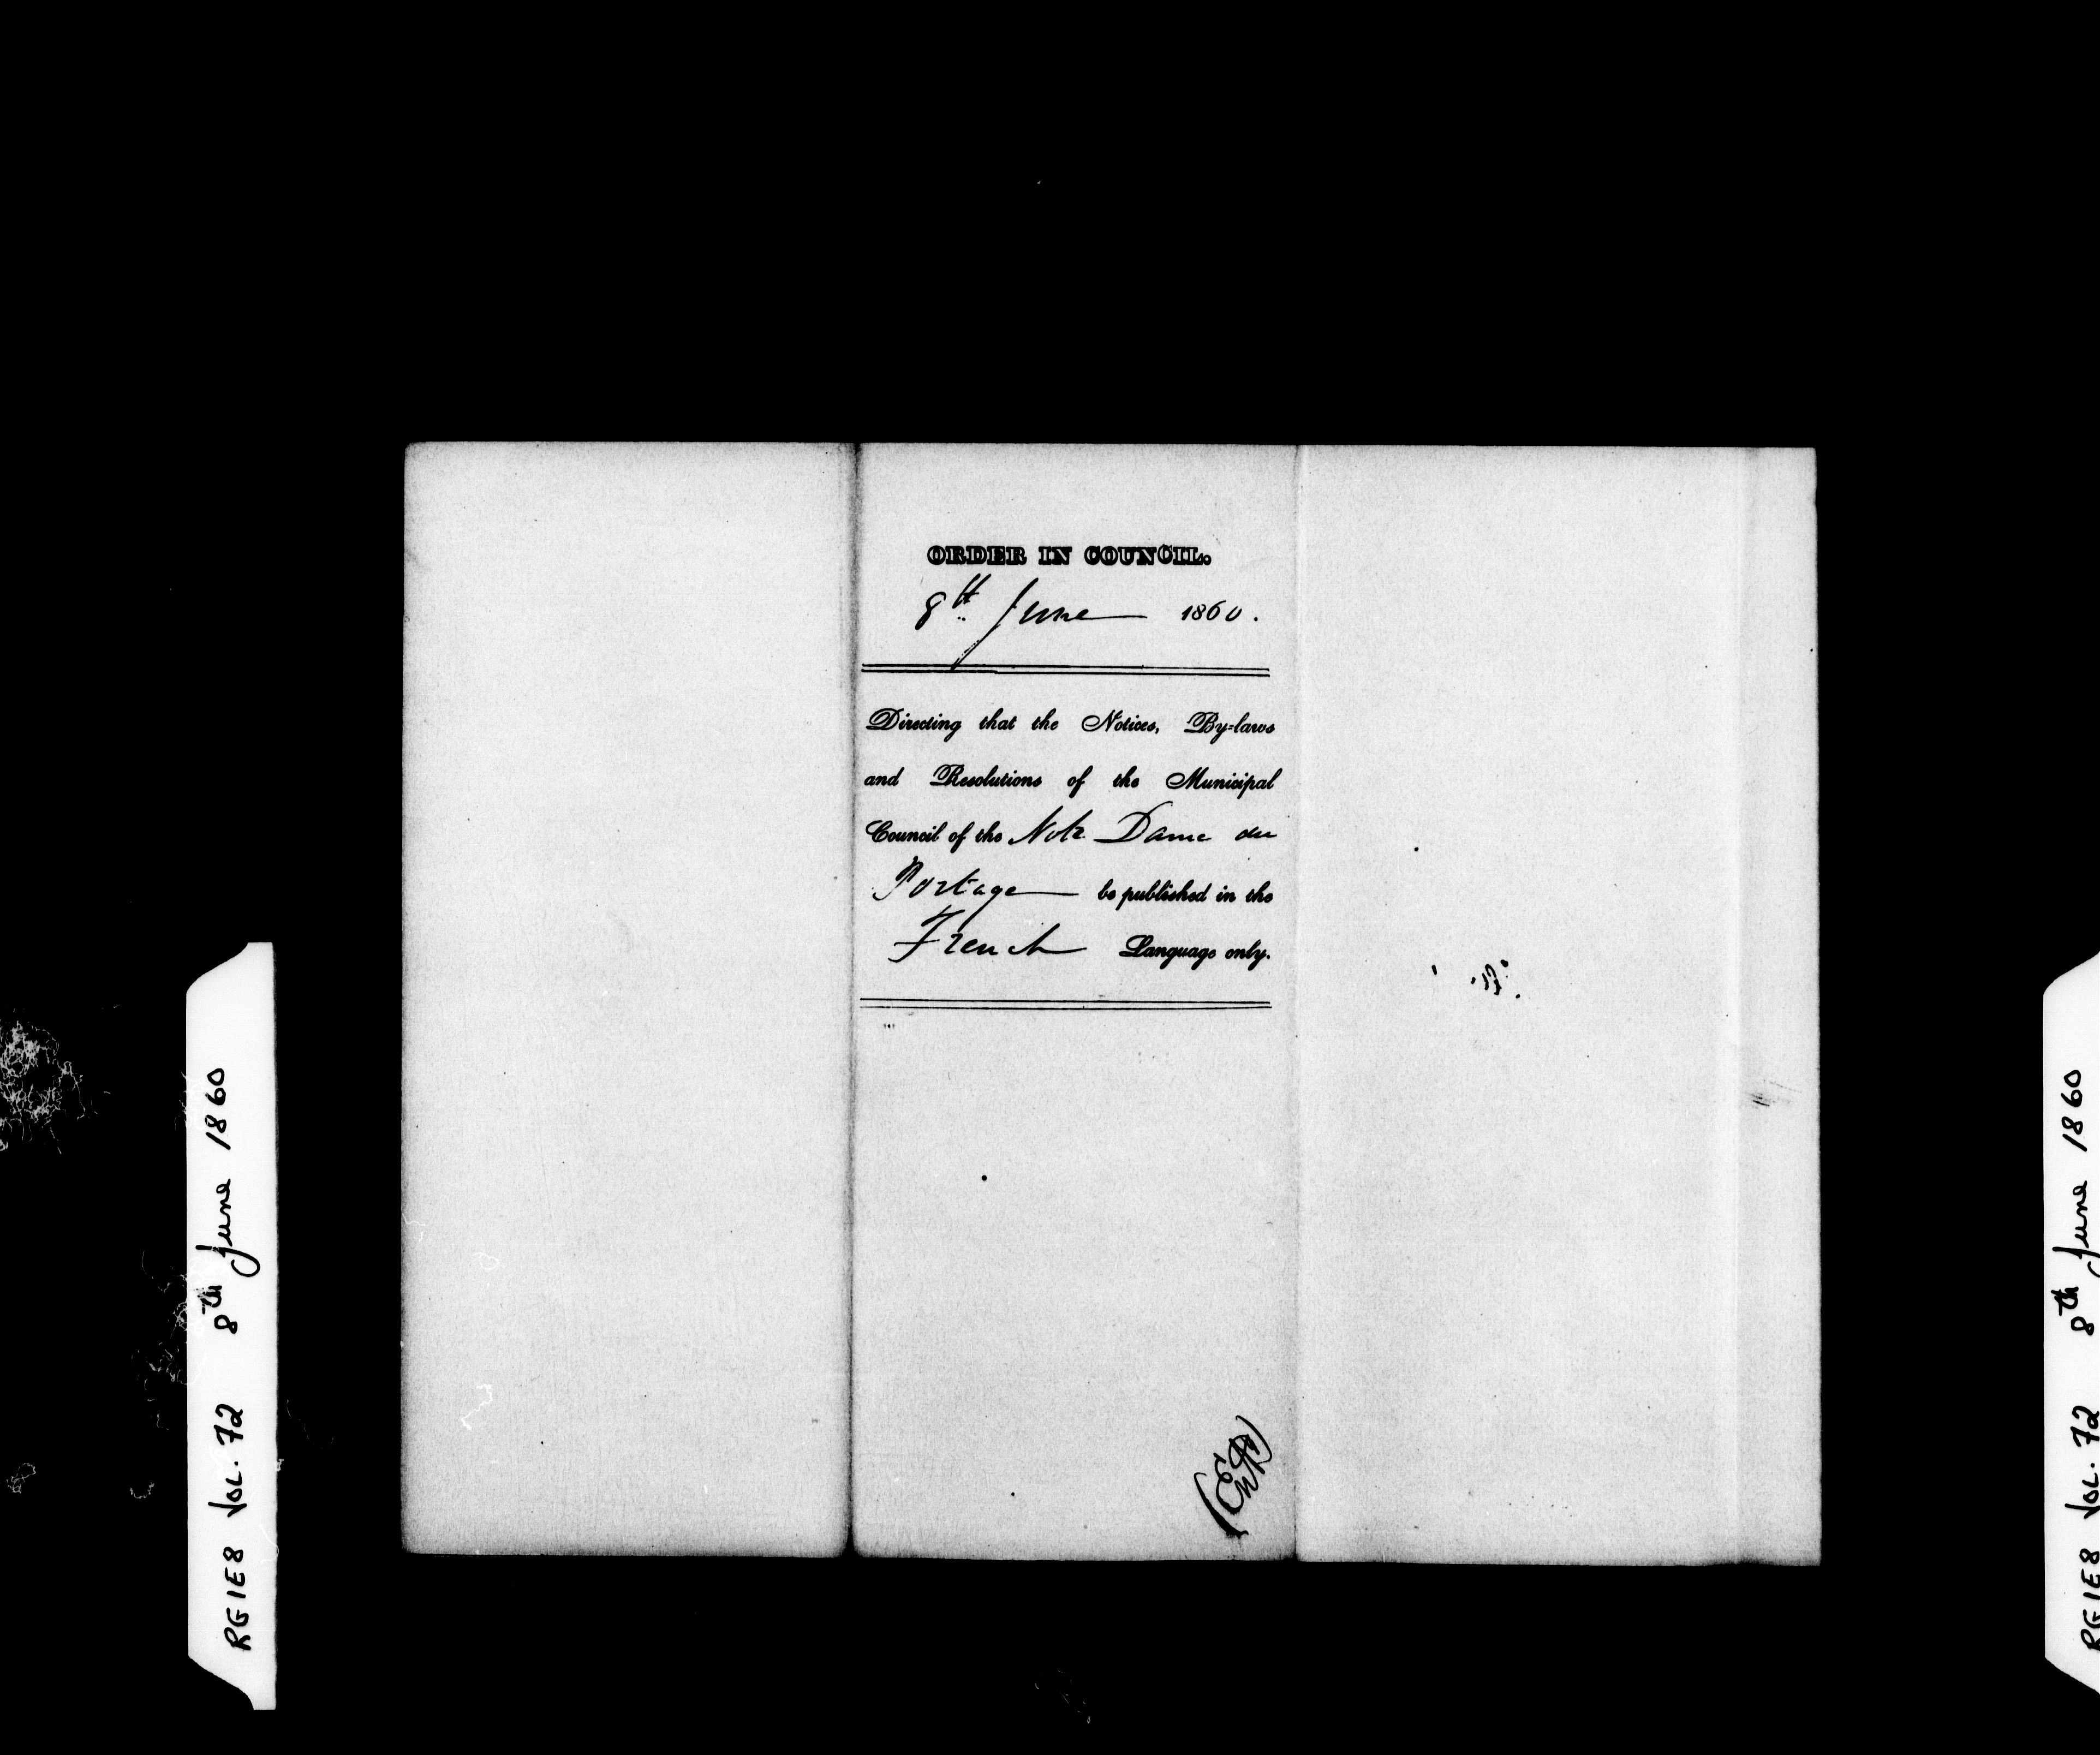 ORDER IN COUNCIL.
8th June 1860.
Directing that the Notices, By-laws
and Resolutions of the Municipal
Council of the Notre Dame du
Portage be published in the
French Language only.
(Entd)
RG1E8 VOL. 72 8th June 1860
RG1E8 VOL. 72 8th June 1860